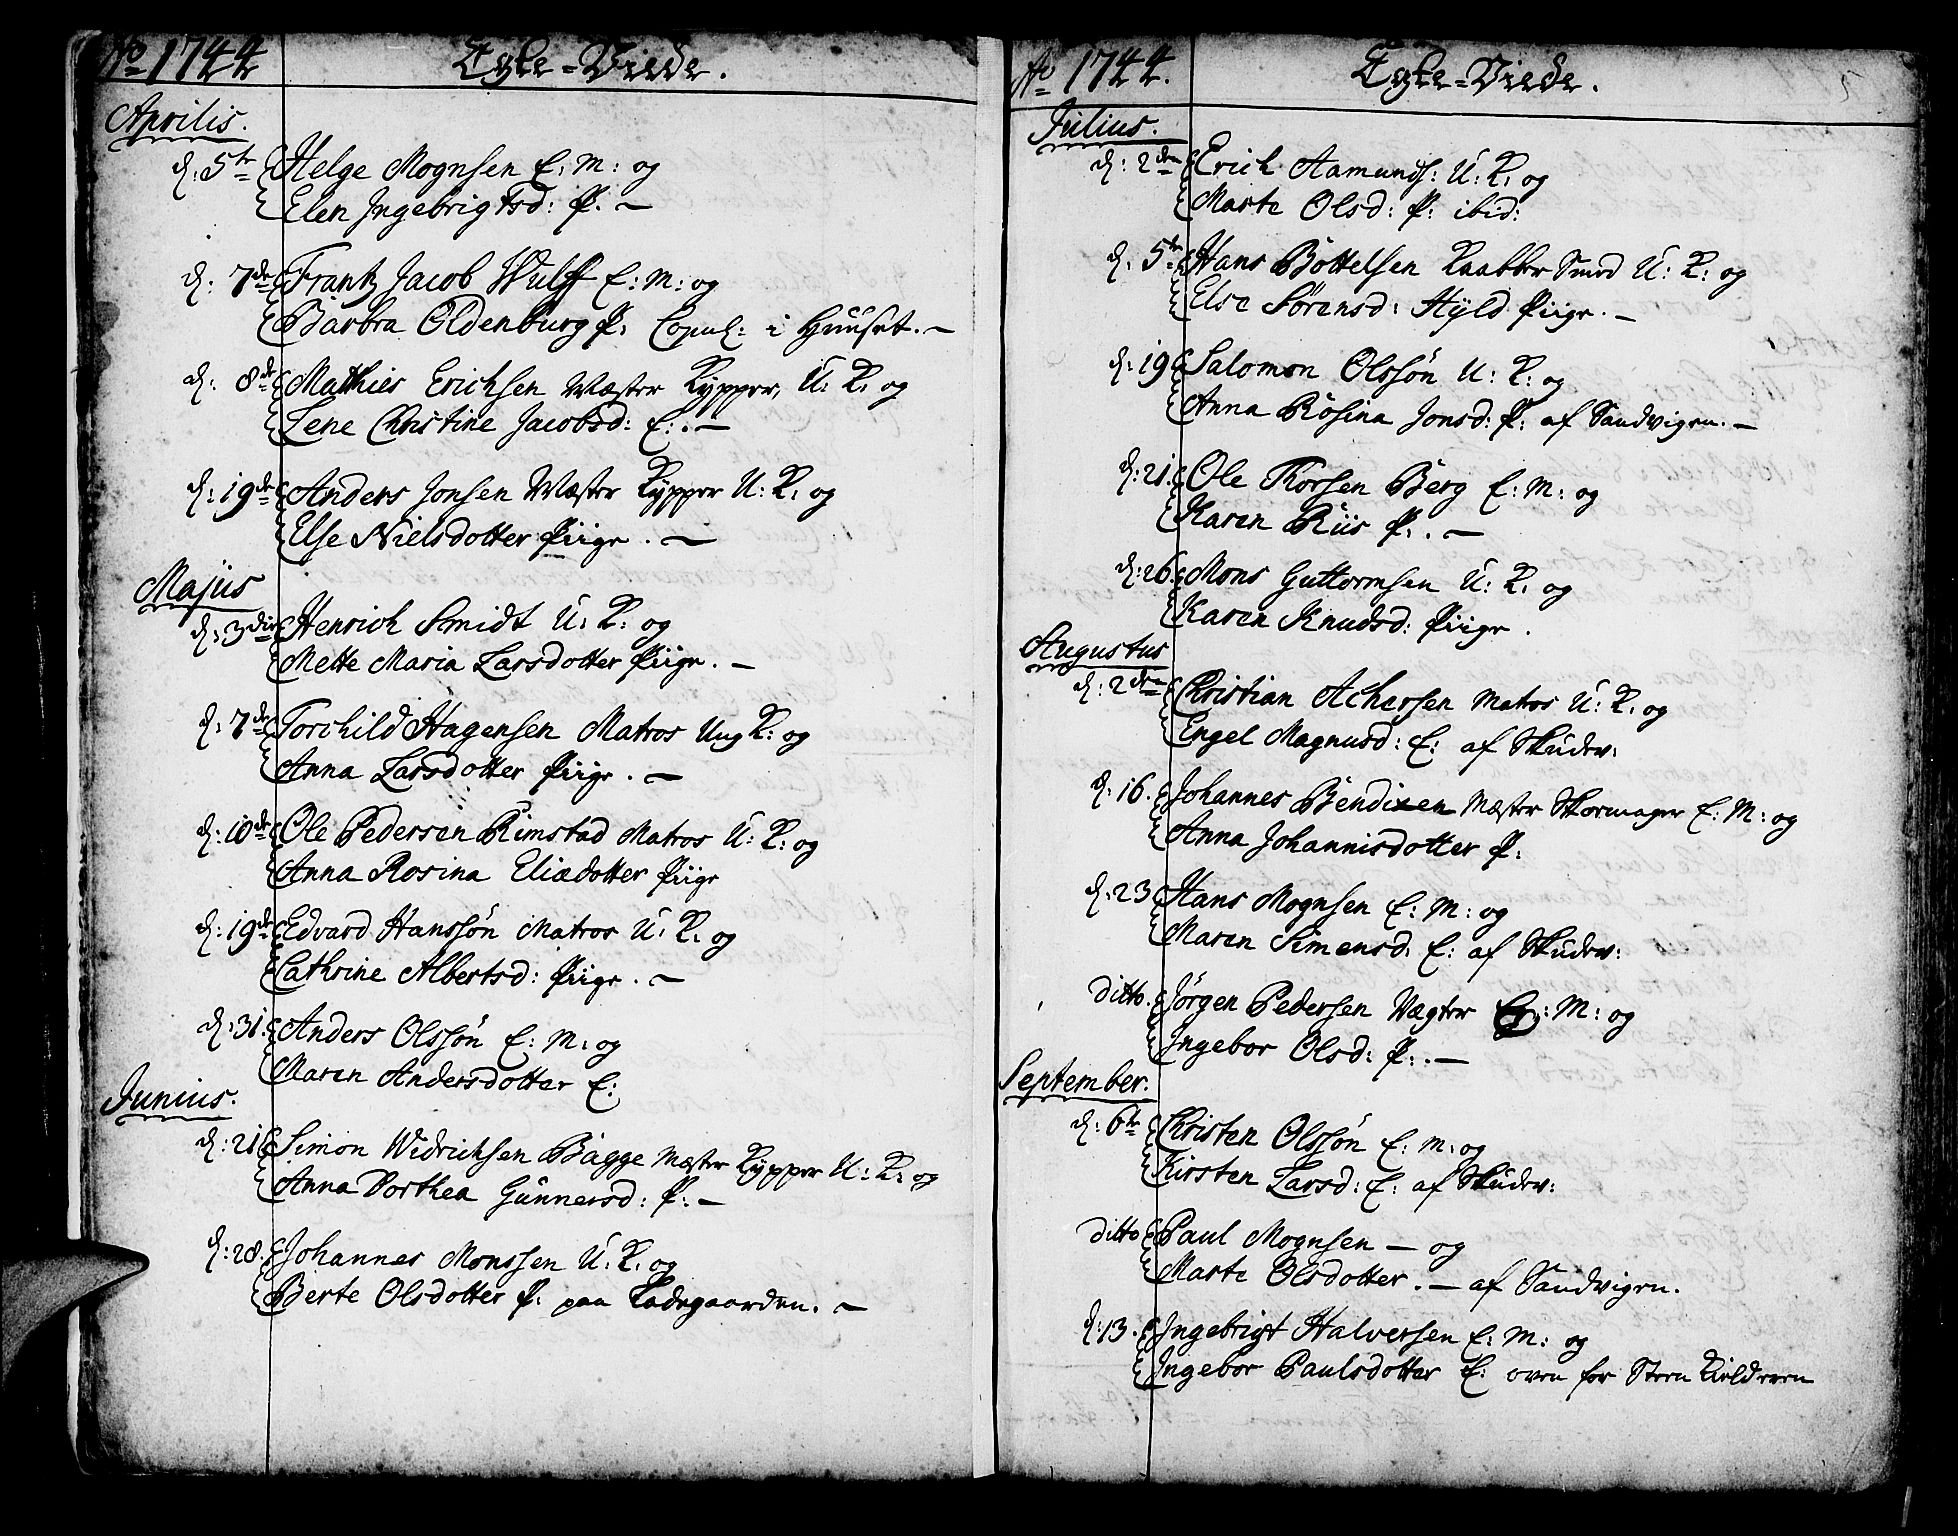 Aō 1744 Egte-Viede.
Aprilis.
d. 5te Helge Mognsen E: M: og
Elen Ingebrigtsd: P. –
d. 7de Frantz Jacob Wulff E: M: og
Barbra Oldenburg P: Copul: i Huuset. –
d. 8de Mathies Erichsen Mæster Kypper, U: K: og
Lene Christine Jacobsd: E: . –
d. 19de Anders Jonsen Mæster Kypper U: K: og
Else Nielsdotter Piige . –
Majus
d. 3die Henrich Smidt U: K: og
Mette Maria Larsdotter Piige. –
d. 7de Torchild Hagensen Matros Ung K: og
Anna Larsdotter Piige . –
d: 10de Ole Pedersen Rimstad Matros U: K: og
Anna Rosina Eliædotter Piige
d: 19de Edvard Hanssøn Matros U: K. og
Cathrine Albertsd: Piige . –
d: 31. Anders Olssøn E: M: og
Maren Andersdotter E:
Junius.
d: 21 Simon Widrichsen Bagge Mæster Kypper U: K: og
Anna Dorthea Gunnersd: P: –
d: 28. Johannes Monssen U: K. og
Berte Olsdotter P: paa Ladegaarden. –
Aō 1744. Egte-Viede. 5
Julius.
d: 2den Erich Aamunds: U: K: og
Marte Olsd: P: ibid:
d. 5te Hans Bøttelsen Kaabber Smed U: K: og
Else Sørensd: Hyld Piige. –
d: 19 Salomon Olssøn U: K: og
Anna Rosina Jonsd: P: af Sandvigen. –
d: 21. Ole Thorsen Berg E: M: og
Karen Riis P: . –
d: 26. Mons Guttormsen U: K: og
Karen Knudsd: Piige .
Augustus
d: 2den Christian Achersen Matros U: K. og
Engel Magnusd: E: af Skudev:
d. 16. Johannes Bendixen Mæster Skomager E: M: og
Anna Johannisdotter P:
d: 23 Hans Mognsen E: M: og
Maren Simensd: E: af Skudev:
ditto. Jørgen Pedersen Vægter E: M: og
Ingebor Olsd: P: . –
September.
d: 6te Christen Olssøn E: M: og
Kirsten Larsd: E: af Skudev:
ditto Paul Mognsen – og
Marte Olsdotter . – af Sandvigen.
d: 13. Ingebrigt Halversen E: M: og
Ingebor Paulsdotter E: oven for Steen